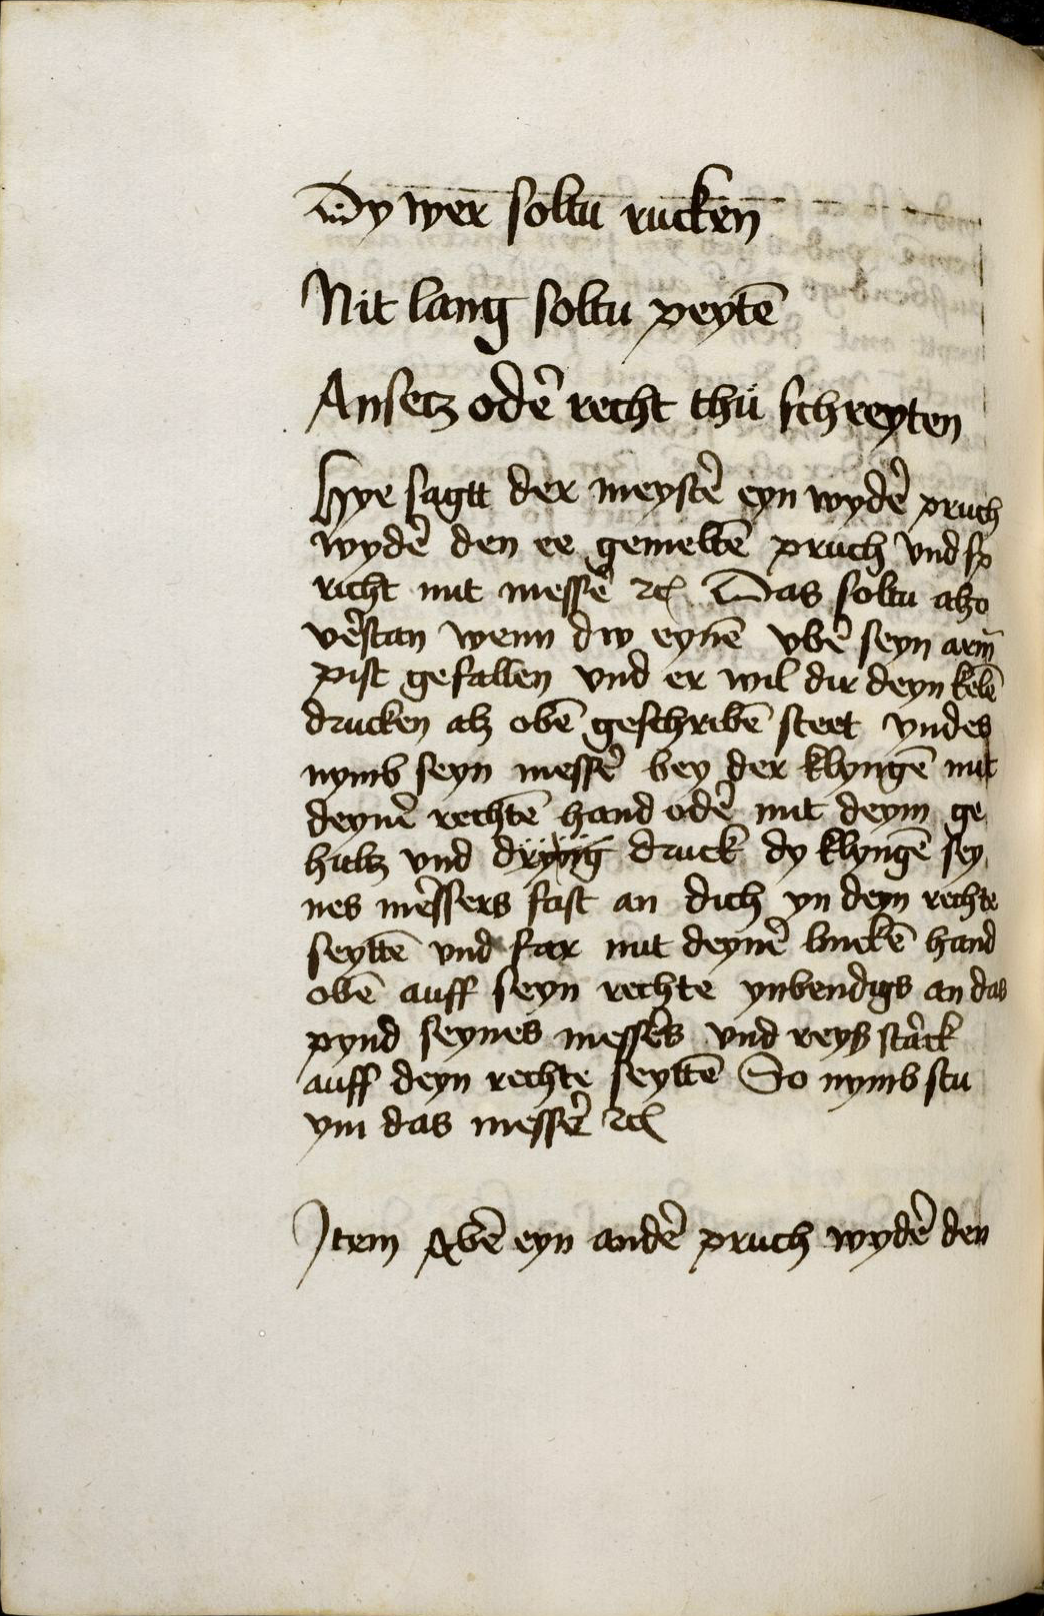 Dy wer soltu rucken
Nit lang soltu peytē
Ansetz odē recht thü schreyten
Hye sagtt der meystē eyn wydē pruch
wydē den ee gemeltē pruch vnd sp
richt mit messē ⁊c̄ Das soltu also
vēstan wenn dw eynē vbē seyn arm̄
pist gefallen vnd er wil dir deyn kelē
drucken alz obē geschribē steet yndes
nymb seyn messē bey der klyngē mit
deynē rechtē hand odē mit deym ge
hultz vnd druck dy klyngē sey
nes messers fast an dich yn deyn rechte
seyttē vnd far mit deynē linckē hand
obē auff seyn rechte ynbendigs an das
pynd seynes messērs vnd reyß starck
auff deyn rechte seyttē So nymbstu
ym das messē ⁊c̄
Item Abē eyn andē pruch wydē den